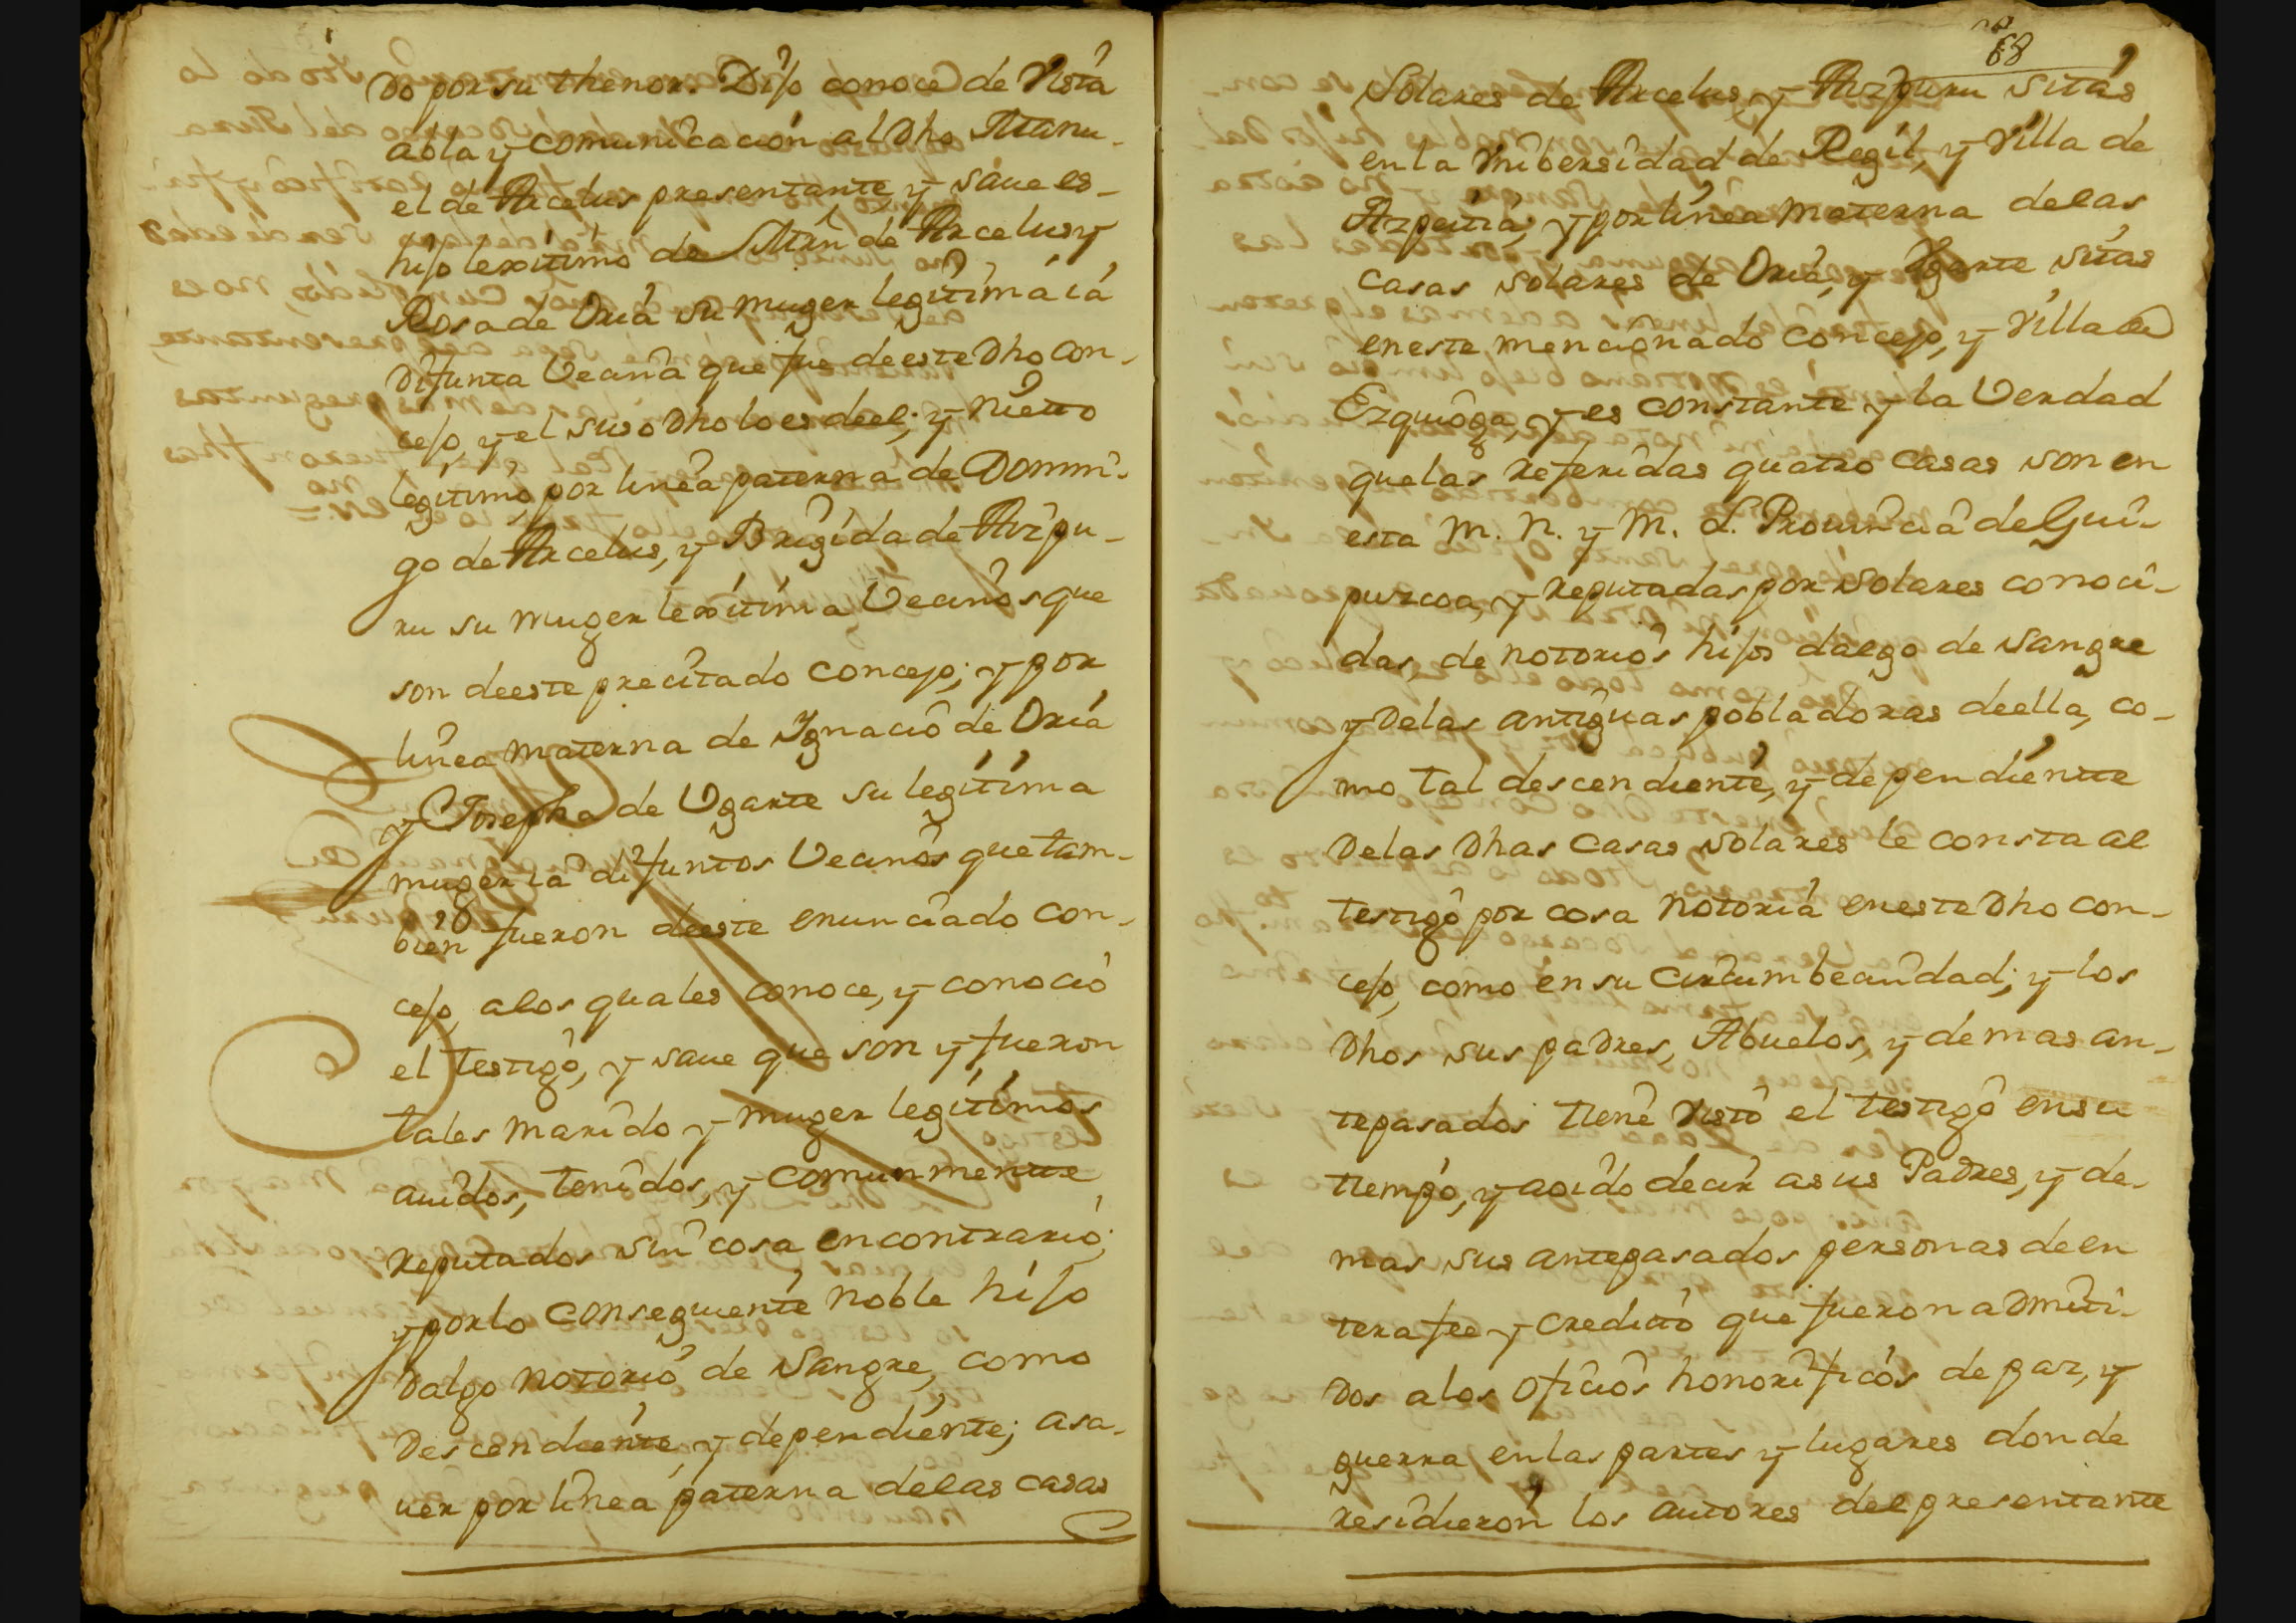 do por su thenor. Dijo conoce de Vista
abla y comunicacion al dho Manu-
el de Arcelus presentante, y saue es-
hijo lexitimo de Mrn de Arcelus y
Rosa de Oria su muger legitima ia
difunta Vecina que fue de este dho con-
cejo, y el suso dho lo es de el; y Nieto
legitimo, por linea paterna de Domin-
go de Arcelus, y Brigida de Aizpu-
ru su muger lexitima Vecinos que
son de este precitado concejo; y por
linea materna de Ygnacio de Oria
y Josepha de Ugarte su legitima
muger ia difuntos Vecinos que tam-
bien fueron de este enunciado con-
cejo, a los quales conoce, y conocio
el testigo, y saue que son y fueron
tales marido y muger legitimos
auidos, tenidos, y comunmentte
reputados sin cosa en contrario;
y por lo conseguiente noble hijo
dalgo notorio de Sangre, como
Descendiente, y dependiente; asa-
uer por linea paterna de las casas
68
Solares de Arcelus, y Aizpuru sitas
en la Unibersidad de Regil, y Villa de
Azpeitia; y por linea materna de las
casas solares de Oria, y Ugarte sitas
en este mencionado concejo, y Villa de
Ezquioga, y es constante y la Verdad
que las referidas quatro casas son en
esta M. N. y M. L. Prouincia de Gui-
puzcoa, y reputadas por solares conoci-
das, de notorios hijos dalgo de Sangre
y de las antiguas pobladoras de ella, co-
mo tal descendiente, y dependientte
de las dhas casas solares le consta al
testigo por cosa notoria en este dho con-
cejo, como en su circumbecindad; y los
dhos sus padres, Abuelos, y demas an-
tepasados tiene visto el testigo en su
tiempo, y a oido decir a sus Padres, y de-
mas sus antepasados personas de en
tera fee y creditto que fueron admiti-
dos a los oficios honorificos de paz, y
guerra en las partes y lugares donde
residieron los autores del presentante